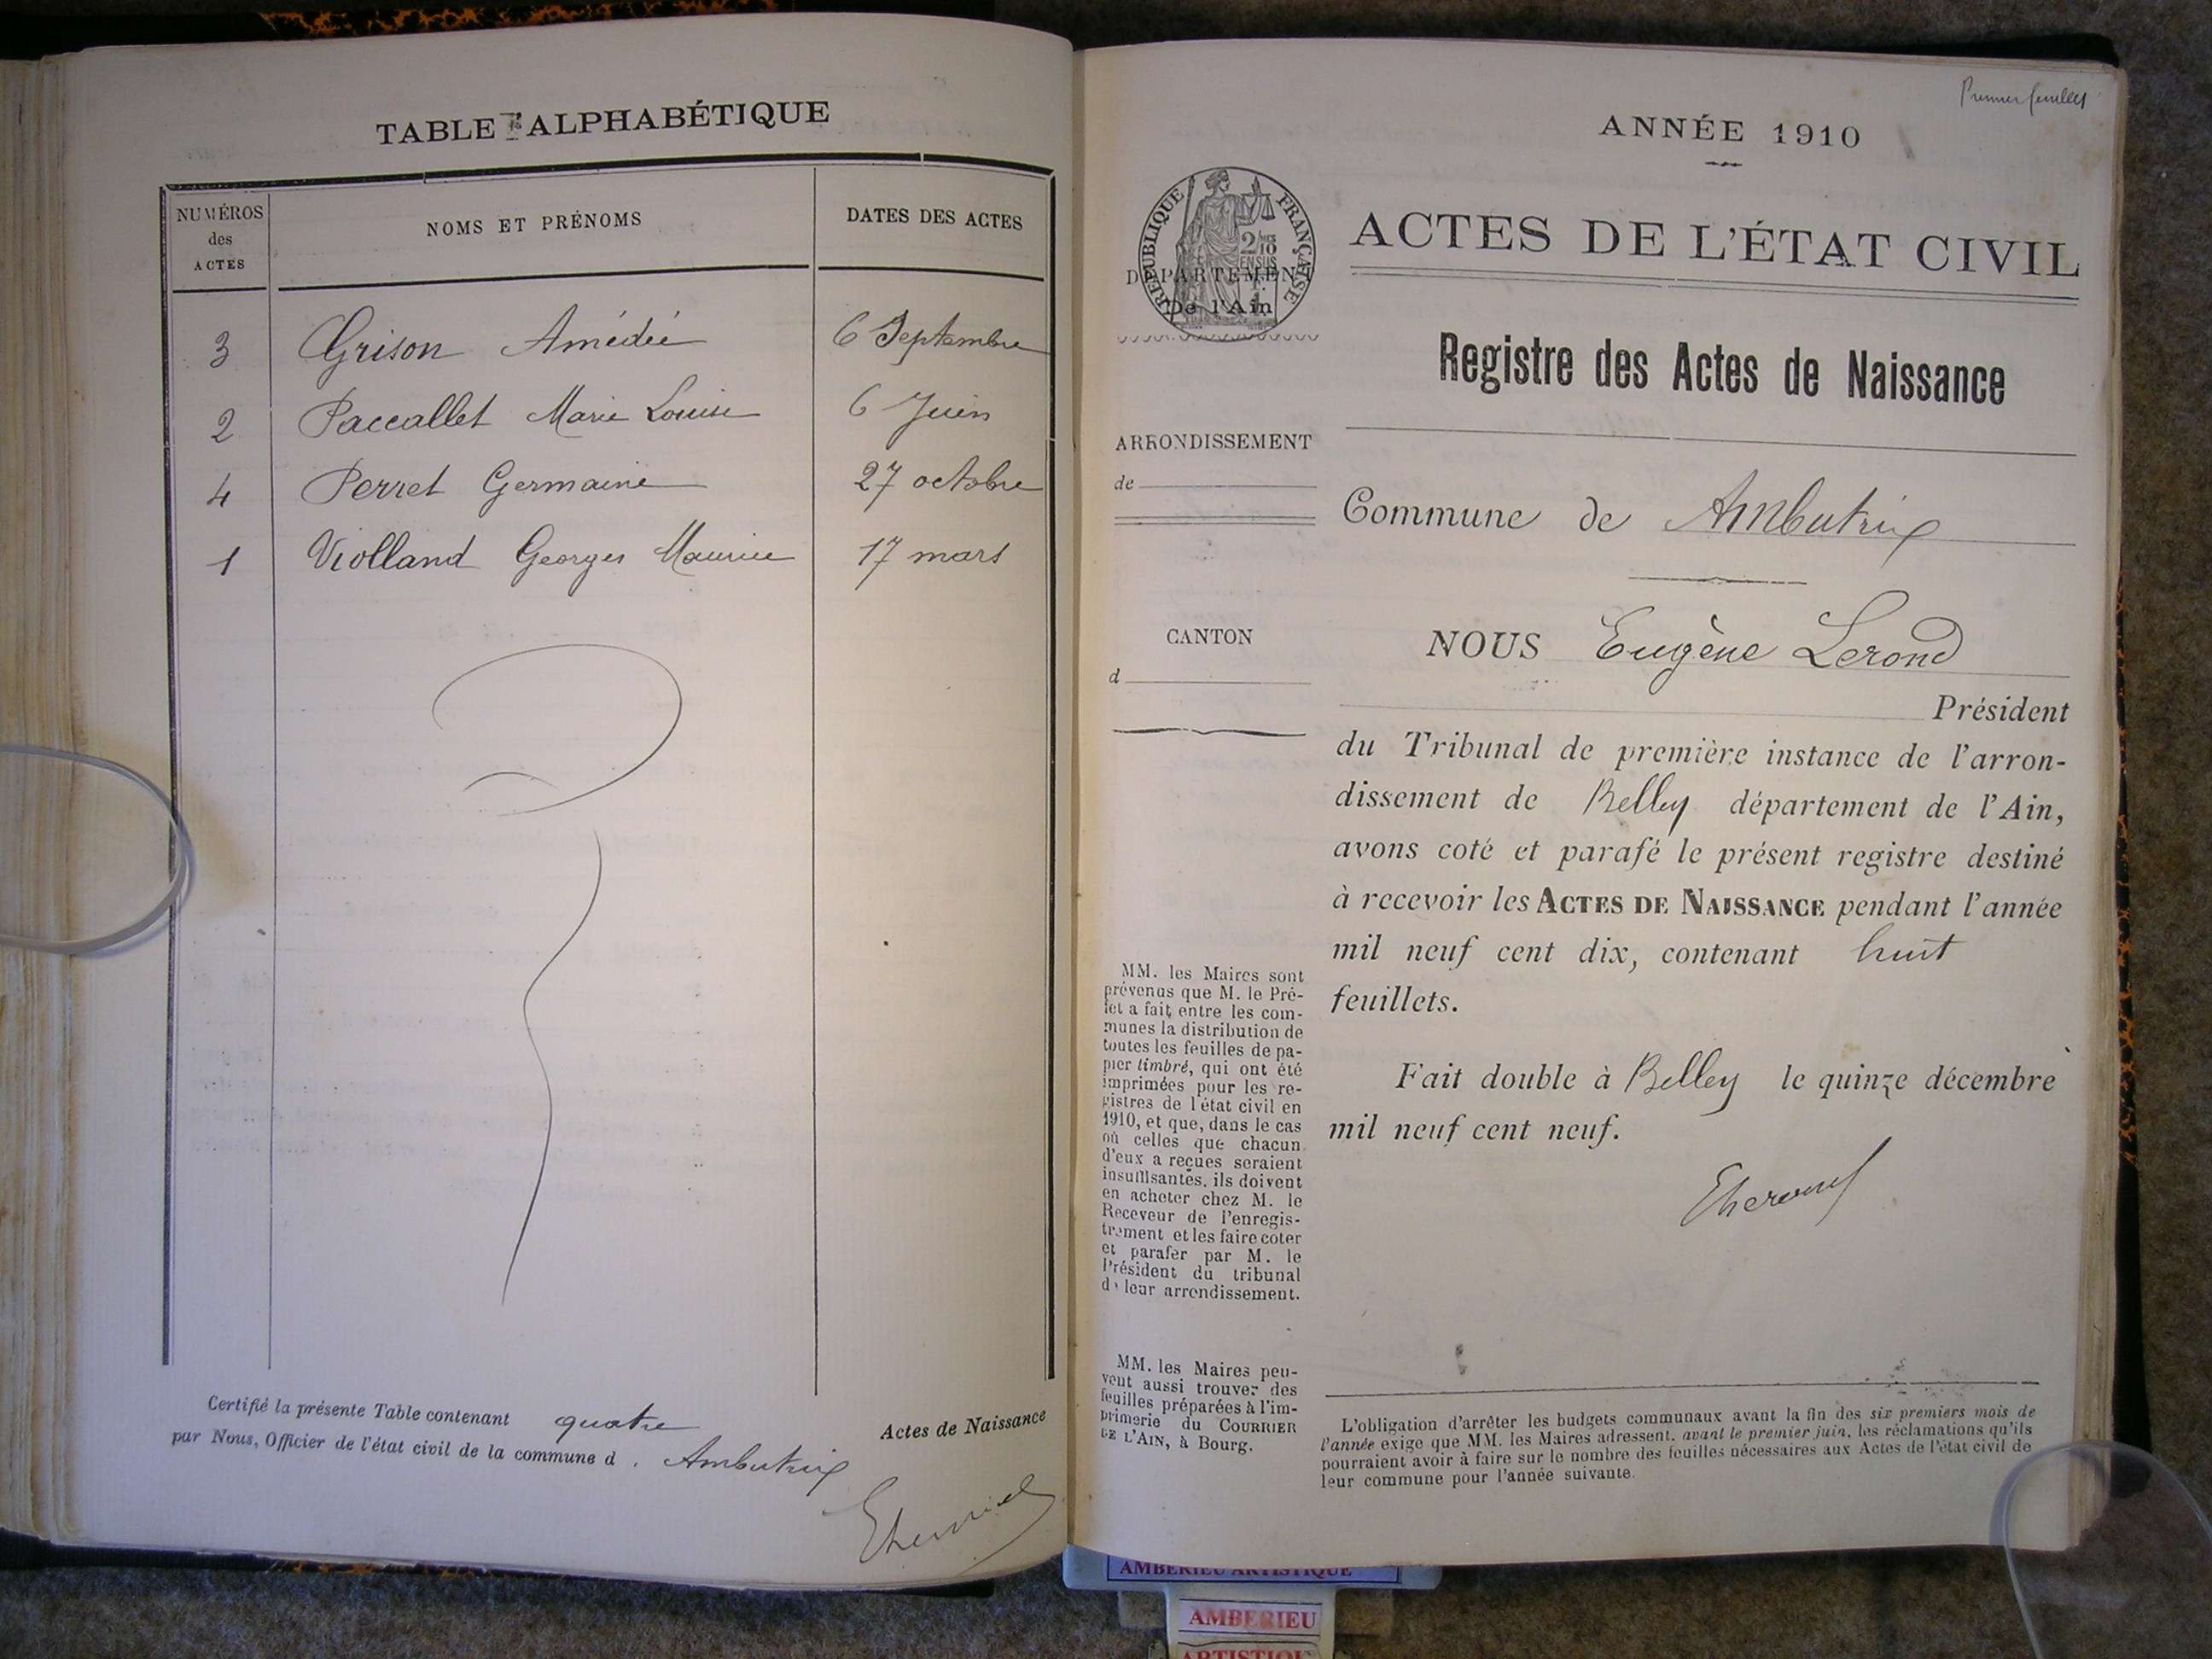 TABLE ALPHABÉTIQUE
NUMÉROS
des
ACTES
NOMS ET PRÉNOMS
DATES DES ACTES
3 Grison Amédée 6 Septembre
2 Paccallet Marie Louise 6 Juin
4 Perret Germaine 27 octobre
1 Violland Georges Maurice 17 mars
Certifié la présente Table contenant quatre Actes de Naissance
par Nous, Officier de l'état civil de la commune d Ambutrix
Premier feuillet
ANNÉE 1910
RÉPUBLIQUE FRANÇAISE
2/10
EN SUS
DÉPARTEMENT
De l'Ain
ACTES DE L'ÉTAT CIVIL
Registre des Actes de Naissance
ARRONDISSEMENT
de
Commune de Ambutrix
CANTON
d
NOUS Eugène Lerond
Président
du Tribunal de première instance de l'arron-
dissement de Belley département de l'Ain,
avons coté et parafé le présent registre destiné
à recevoir les ACTES DE NAISSANCE pendant l'année
mil neuf cent dix, contenant huit
feuillets.
Fait double à Belley le quinze décembre
mil neuf cent neuf.
MM. les Maires sont
prévenus que M. le Pré-
fet a fait entre les com-
munes la distribution de
toutes les feuilles de pa-
pier timbré, qui ont été
imprimées pour les re-
gistres de l'état civil en
1910, et que, dans le cas
où celles que chacun
d'eux a reçues seraient
insuffisantes, ils doivent
en acheter chez M. le
Receveur de l'enregis-
trement et les faire coter
et parafer par M. le
Président du tribunal
de leur arrondissement.
MM. les Maires peu-
vent aussi trouver des
feuilles préparées à l'im-
primerie du COURRIER
DE L'AIN, à Bourg.
L'obligation d'arrêter les budgets communaux avant la fin des six premiers mois de
l'année exige que MM. les Maires adressent, avant le premier juin, les réclamations qu'ils
pourraient avoir à faire sur le nombre des feuilles nécessaires aux Actes de l'état civil de
leur commune pour l'année suivante.
AMBERIEU ARTISTIQUE
AMBERIEU
ARTISTIQUE